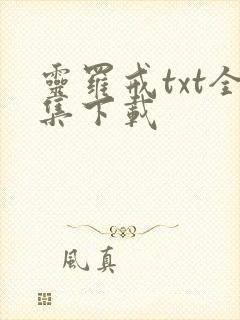 靈羅戒txt全
集下載
風真